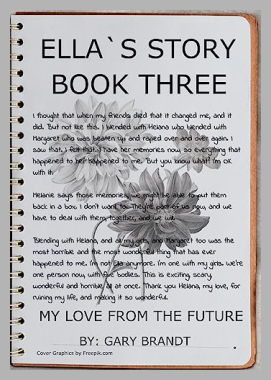 ELLA`S STORY
BOOK THREE
I thought that when my friends died that it changed me, and it
did. But not like this. I blended with Heiana who blended with
Margaret who was beaten up and raped over and over again. I
saw that. I felt that. I have her memories now, so everything that
happened to her happened to me. "But you know what? I'm OK
with it.
Helanie says those memories, we might be able to put them
back in a box. I don't want to. They're part of us now, and we
have to deal with them together, and we will.
"Blending with Heiana, and all my girls, and Margaret too was the
most horrible and the most wonderful thing that has ever
happened to me. I'm not Ella anymore. I'm one with my girls. We're
one person now, with five bodies. This is exciting, scary,
wonderful and horrible all at once. Thank you Heiana, my love, for
ruining my life, and making it so wonderful.
MY LOVE FROM THE FUTURE
BY: GARY BRANDT
Cover Graphics by Freepik.com